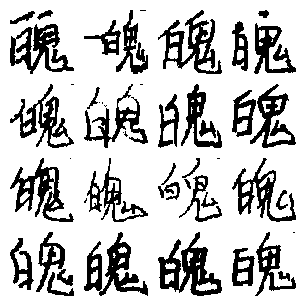 魄魄魄魄
魄魄魄魄
魄魄魄魄
魄魄魄魄